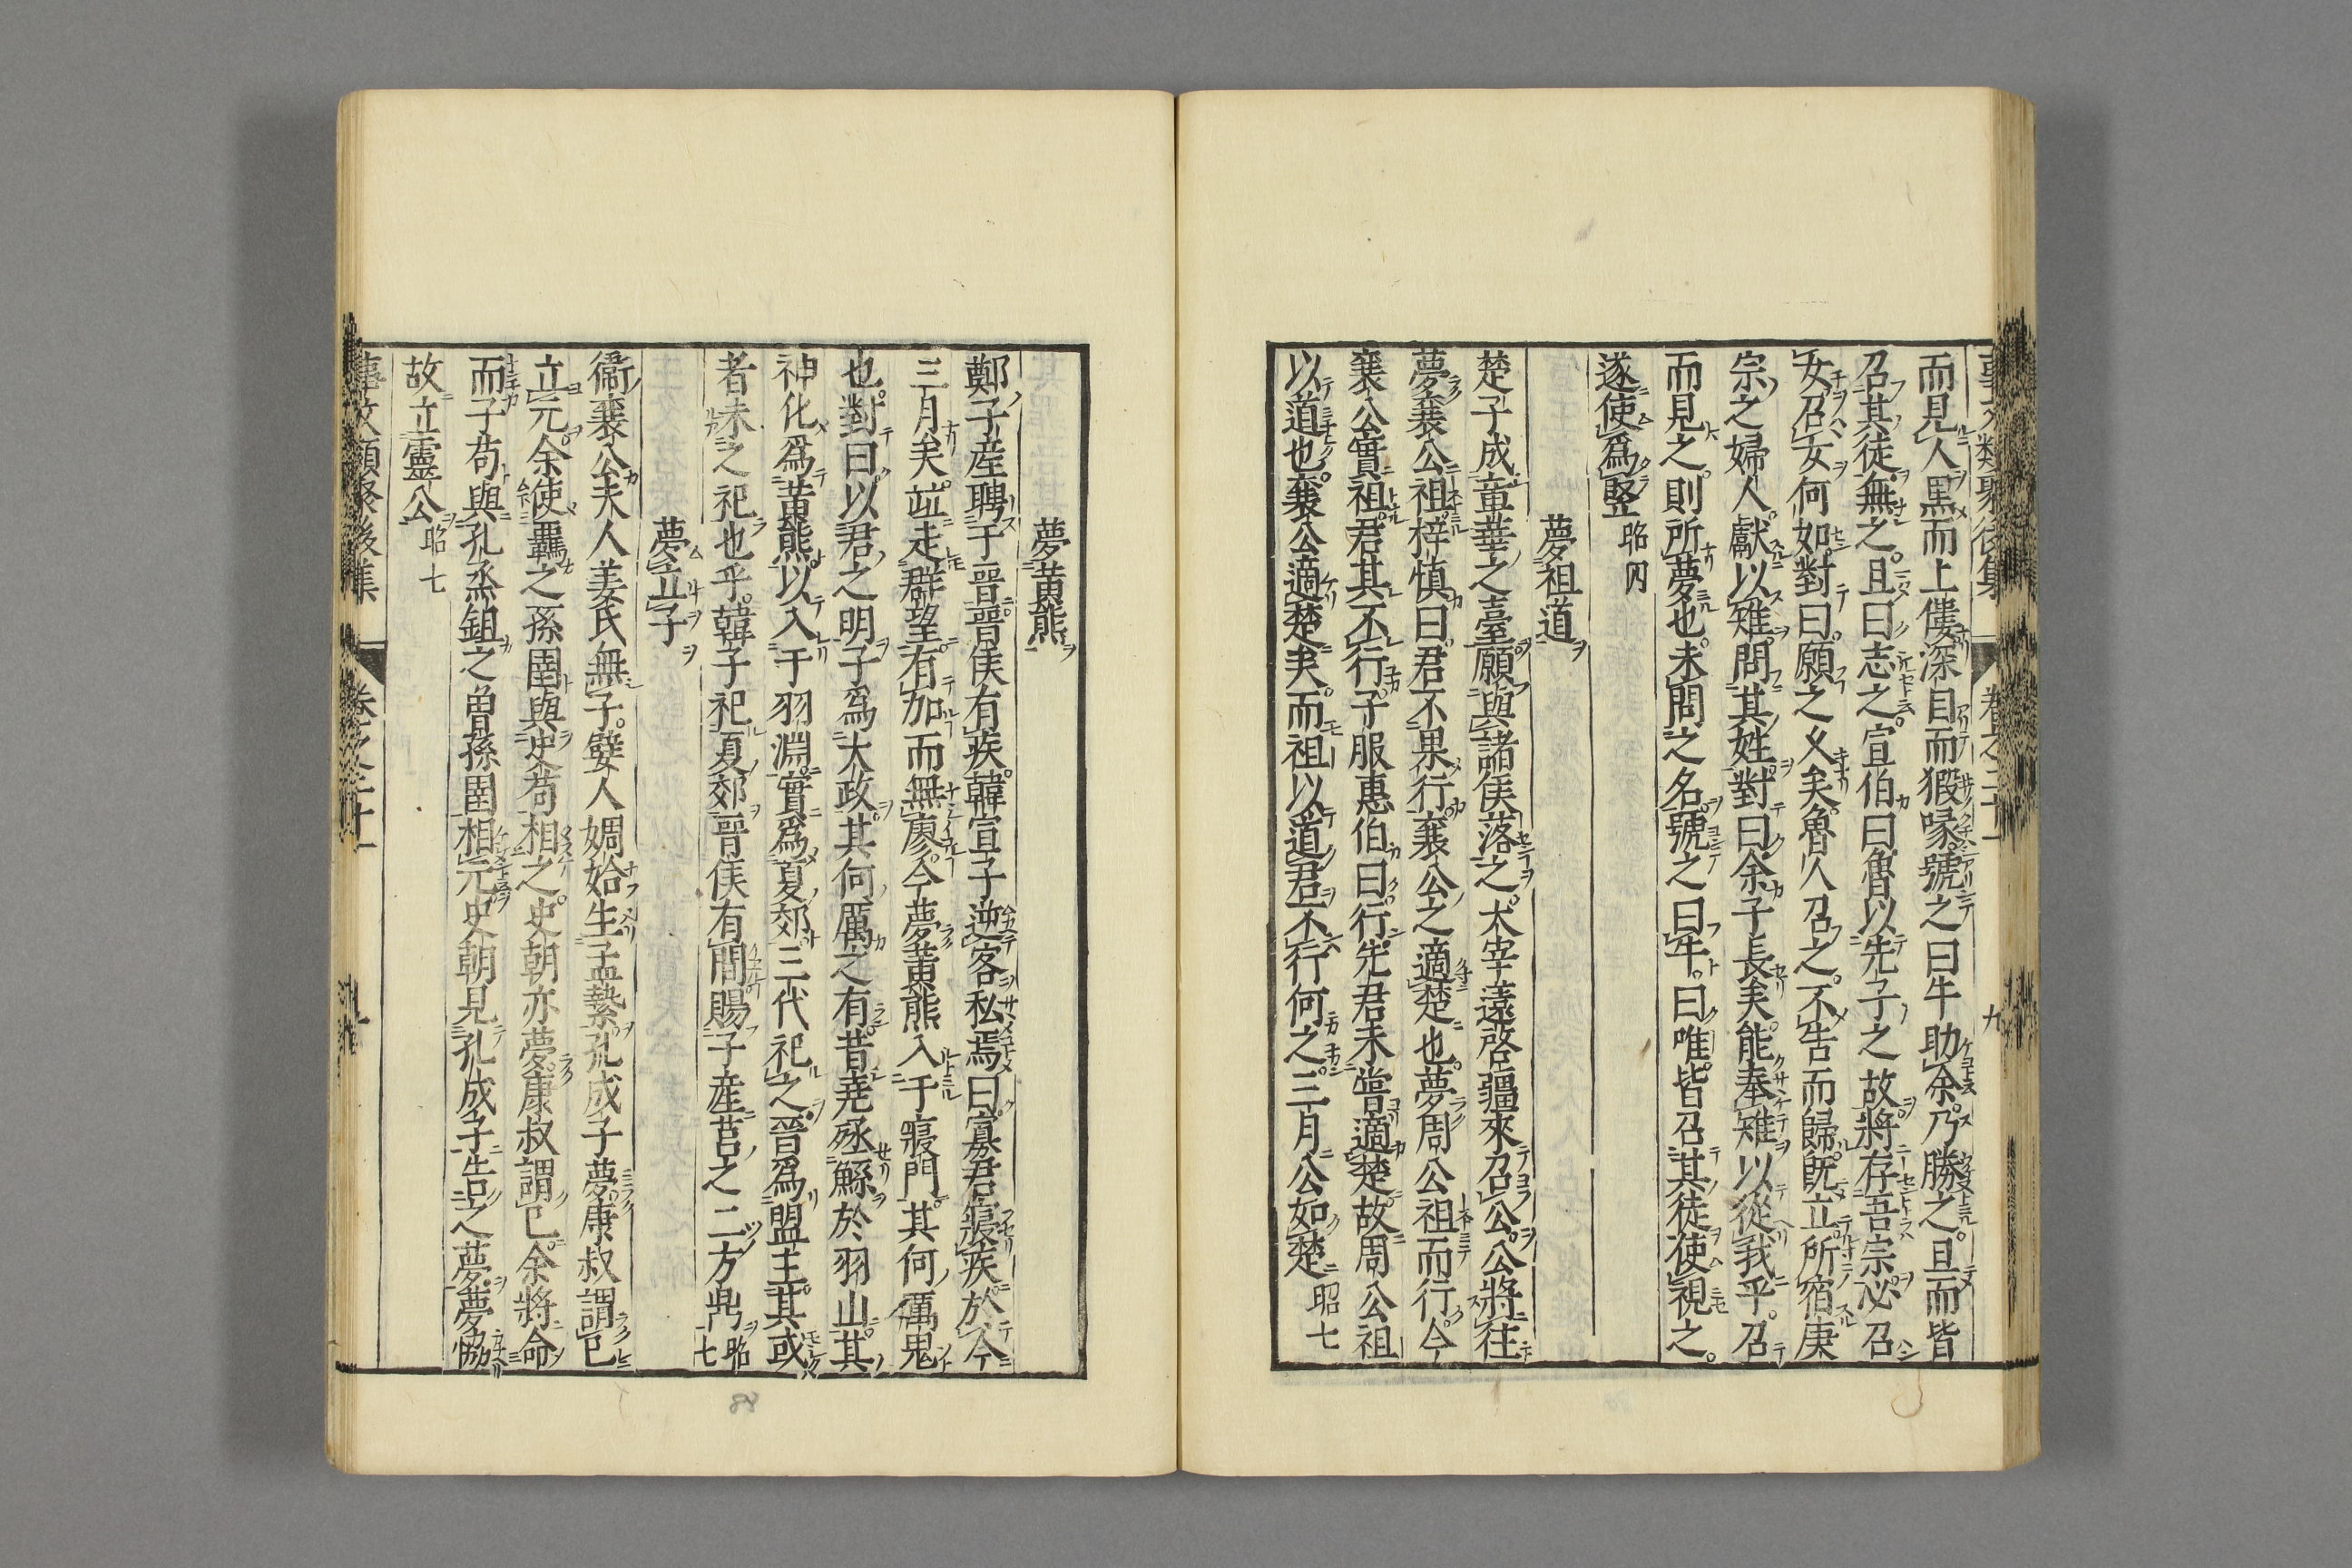 而見人黒而上僂深目而猳喙號之曰牛助余乃勝之旦而皆
召其徒無之且曰志之宣伯曰魯以先子之故將存吾宗必召
女召女何如對曰願之乆矣魯人召之不告而歸既立所宿庚
宗之婦人獻以雉問其姓對曰余子長矣能奉雉以從我乎召
而見之則所夢也未問之名號之曰牛曰唯皆召其徒使視之
遂使爲竪昭四
夢祖道
楚子成章華之臺願與諸侯落之大宰薳啓疆來召公公將往
夢襄公祖梓慎曰君不果行襄公之適楚也夢周公祖而行今
襄公實祖君其不行子服惠伯曰行先君未嘗適楚故周公祖
以道也襄公適楚矣而祖以道君不行何之三月公如楚昭七
夢黄熊
鄭子産聘于晉晉侯有疾韓宣子逆客私焉曰寡君寢疾於今
三月矣竝走群望有加而無廖今夢黄熊入于寢門其何厲鬼
也對曰以君之明子爲大政其何厲之有昔堯殛鯀於羽山其
神化爲黄熊以入于羽淵實爲夏郊三代祀之晉爲盟主其或
者未之祀也乎韓子祀夏郊晉侯有間賜子産莒之二方鼎昭七
夢立子
衞襄公夫人姜氏無子嬖人婤姶生孟縶孔成子夢康叔謂已
立元余使羈之孫圉與史苟相之史朝亦夢康叔謂已余將命
而子苟與孔烝鉏之曽孫圉相元史朝見孔成子告之夢夢恊
故立靈公昭七
事文類聚後集